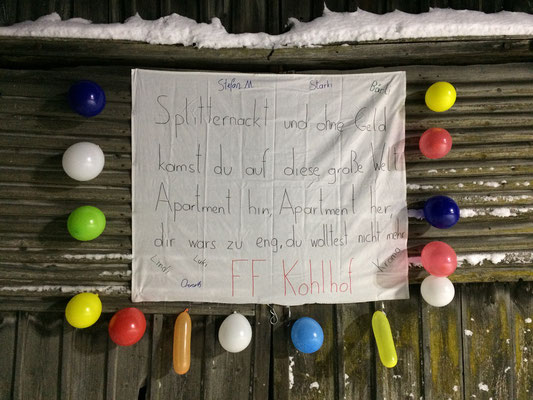 Stefan M. Starki
Splitternackt und ohne Geld
kamst du auf diese große Welt
Apartment hin, Apartment her,
dir wars zu eng, du wolltest nicht mehr
Luki
FF Kohlhof